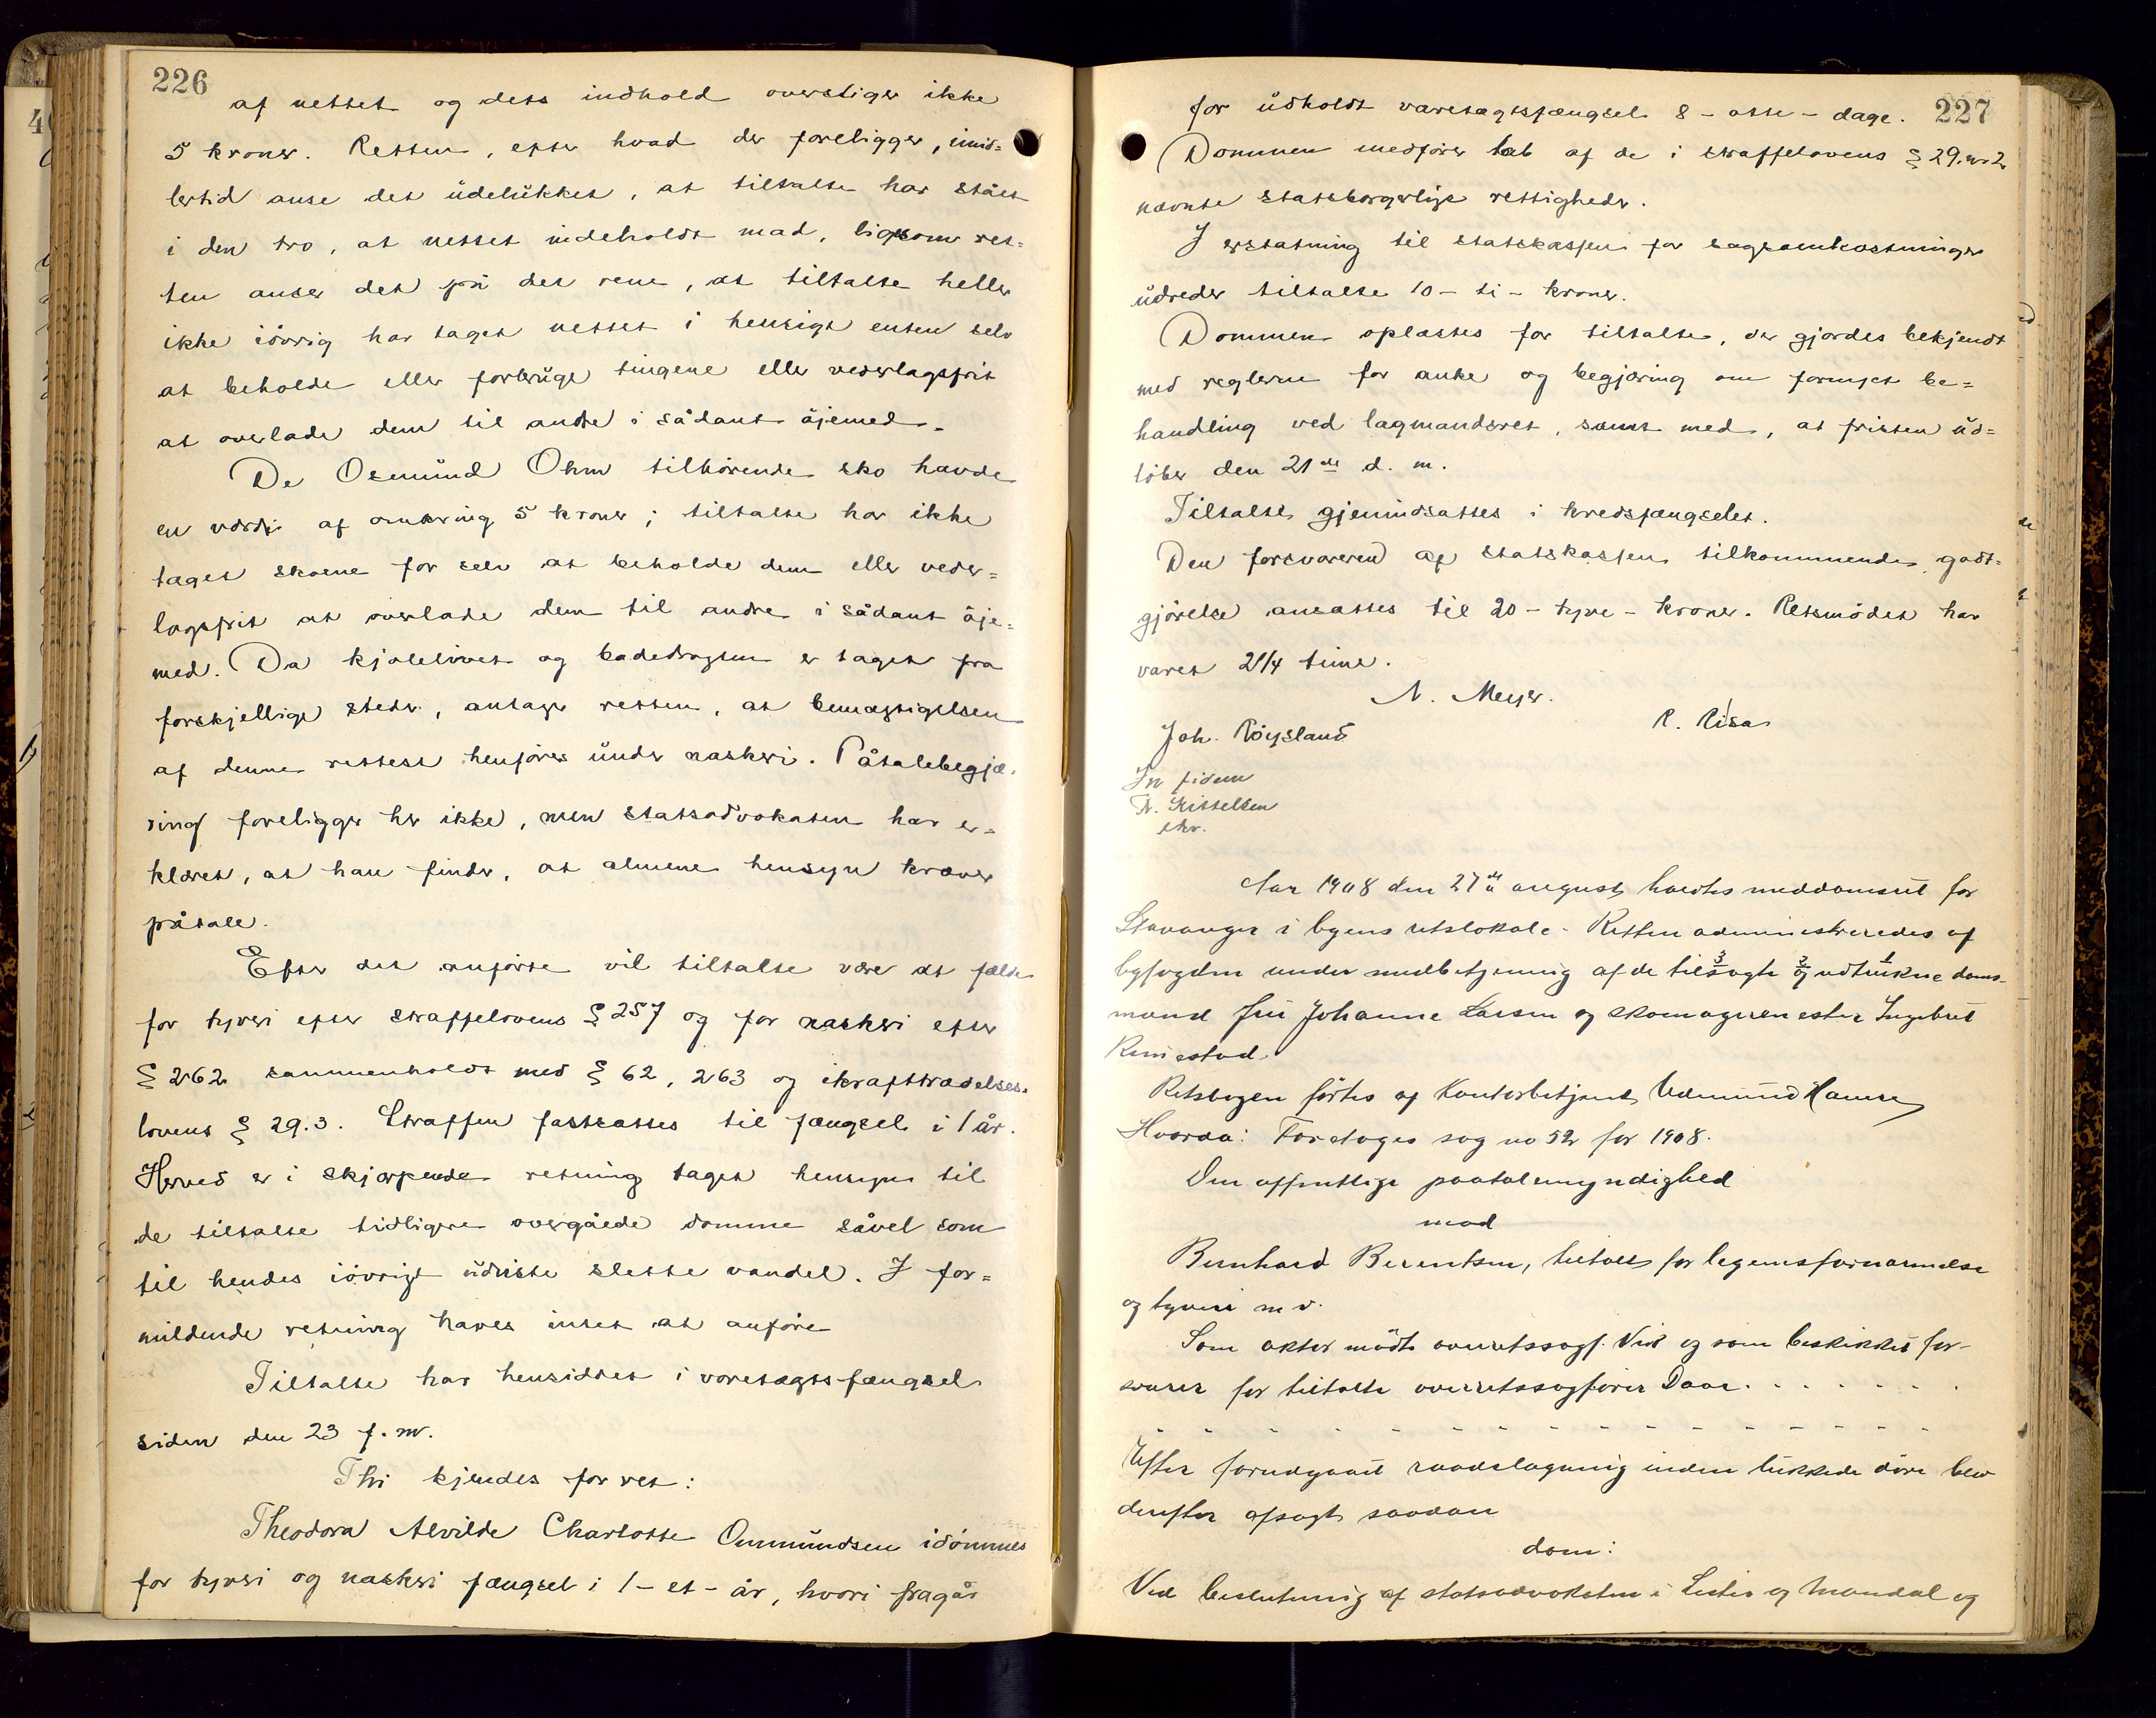 226
af nettet og dets indhold overstiger ikke
5 kroner. Retten, efter hvad der foreligger, imid=
lertid anse det üdelükket, at tiltalte har stået
i den tro, at nettet indeholdt mad, ligesom ret=
ten anser det på det rene, at tiltalte heller
ikke iövrig har taget nettet i hensigt enten selv
at beholde eller forbrüge tingene eller vederlagsfrit
at overlade dem til andre i sådant öjemed.
De Osmünd Ohm tilhörende sko havde
en værdi af omkring 5 kroner; tiltalte har ikke
taget skoene for selv at beholde dem eller veder=
lagsfrit at overlade dem til andre i sådant öje=
med. Da kjolelivet og badedragten er taget fra
forskjellige steder, antager retten, at bemægtigelsen
af denne rettest henföres ünder naskeri. Påtalebegjæ=
ring foreligger her ikke, men statsadvokaten har er=
klæret, at han finder, at almene hensyn kræver
påtale.
Efter det anförte vil tiltalte være at fælde
for tyveri efter straffelovens § 257 og for naskeri efter
§ 262 sammenholdt med § 62, 263 og ikrafttrædelses=
lovens § 29.3. Straffen fastsættes til fængsel i 1 år.
Herved er i skjærpende retning taget hensyn til
de tiltalte tidligere overgåede domme såvel som
til hendes iövrigt üdviste slette vandel. I for=
mildende retning haves intet at anföre
Tiltalte har hensiddet i varetægtsfængsel
siden den 23 f. m.
Thi kjendes for ret:
Theodora Alvilde Charlotte Ommündsen idömmes
for tyveri og naskeri fængsel i 1 - et - år, hvori fragår
227
for üdholdt varetægtsfængsel 8 - otte - dage.
Dommen medförer tab af de i straffelovens § 29. nr 2
nævnte statsborgerlige rettigheder.
I erstatning til statskassen for sagsomkostninger
üdreder tiltalte 10 - ti - kroner.
Dommen oplæstes for tiltalte, der gjordes bekjendt
med reglerne for anke og begjæring om fornyet be=
handling ved lagmandsret, samt med, at fristen üd=
löber den 21de d. m.
Tiltalte gjenindsattes i kredsfængselet.
Den forsvareren af statskassen tilkommende godt=
gjörelse ansattes til 20 - tyve - kroner. Retsmödet har
varet 2 1/4 time.
N. Meyer.
Joh. Röysland
R. Risa
In fidem
N. Kittelsen
ekr.
Aar 1908 den 27de august holdtes meddomsret for
Stavanger i byens retslokale. Retten administreredes af
byfogden under medbetjening af de tilsagte og udtrukne doms-
mænd frü Johanne Larsen og skomagermester Ingebret
Rennestad.
Retsbogen förtes af kontorbetjent Udmünd Hansen
Hvorda: Foretoges sag no 52 for 1908.
Den offentlige paatalemyndighed
mod
Bernhard Berentsen, tiltalt for legemsfornærmelse
og tyveri m v.
Som aktor mödte overretssagf. Vik og som beskikket for-
svarer for tiltalte overretssagförer Daae. . . . . . . .
- - - - - - - - - - - - - -
Efter forudgaaet raadslagning inden lükkede döre blev
derefter afsagt saadan
dom:
Ved beslutning af statsadvokaten i Lister og Mandal og